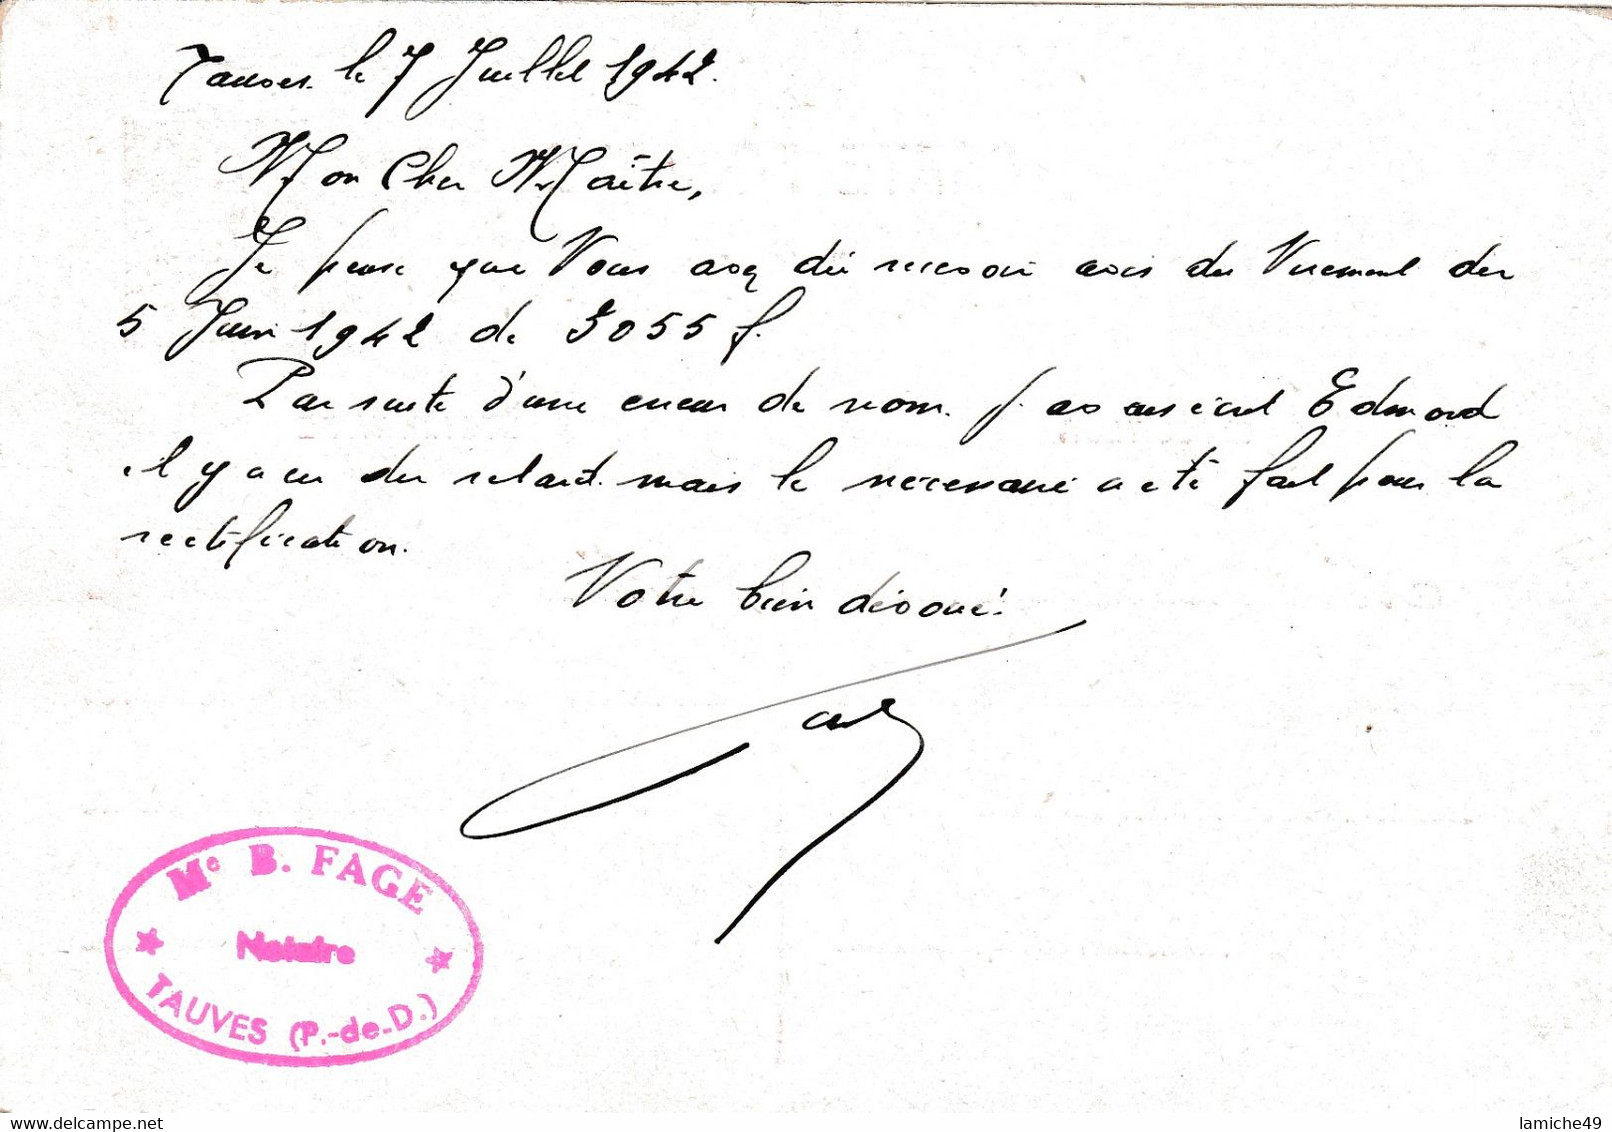 Tauves le 7 Juillet 1942.
Mon Cher Maître,
Je pense que Vous avez dû recevoir avis du Virement du
5 Juin 1942 de 3055 f.
Par suite d'une erreur de nom. j'avais écrit Edmond
il y a eu du retard. mais le nécessaire a été fait pour la
rectification.
Votre bien dévoué.
Me B. FAGE
Notaire
TAUVES (P.-de-D.)
lamiche49